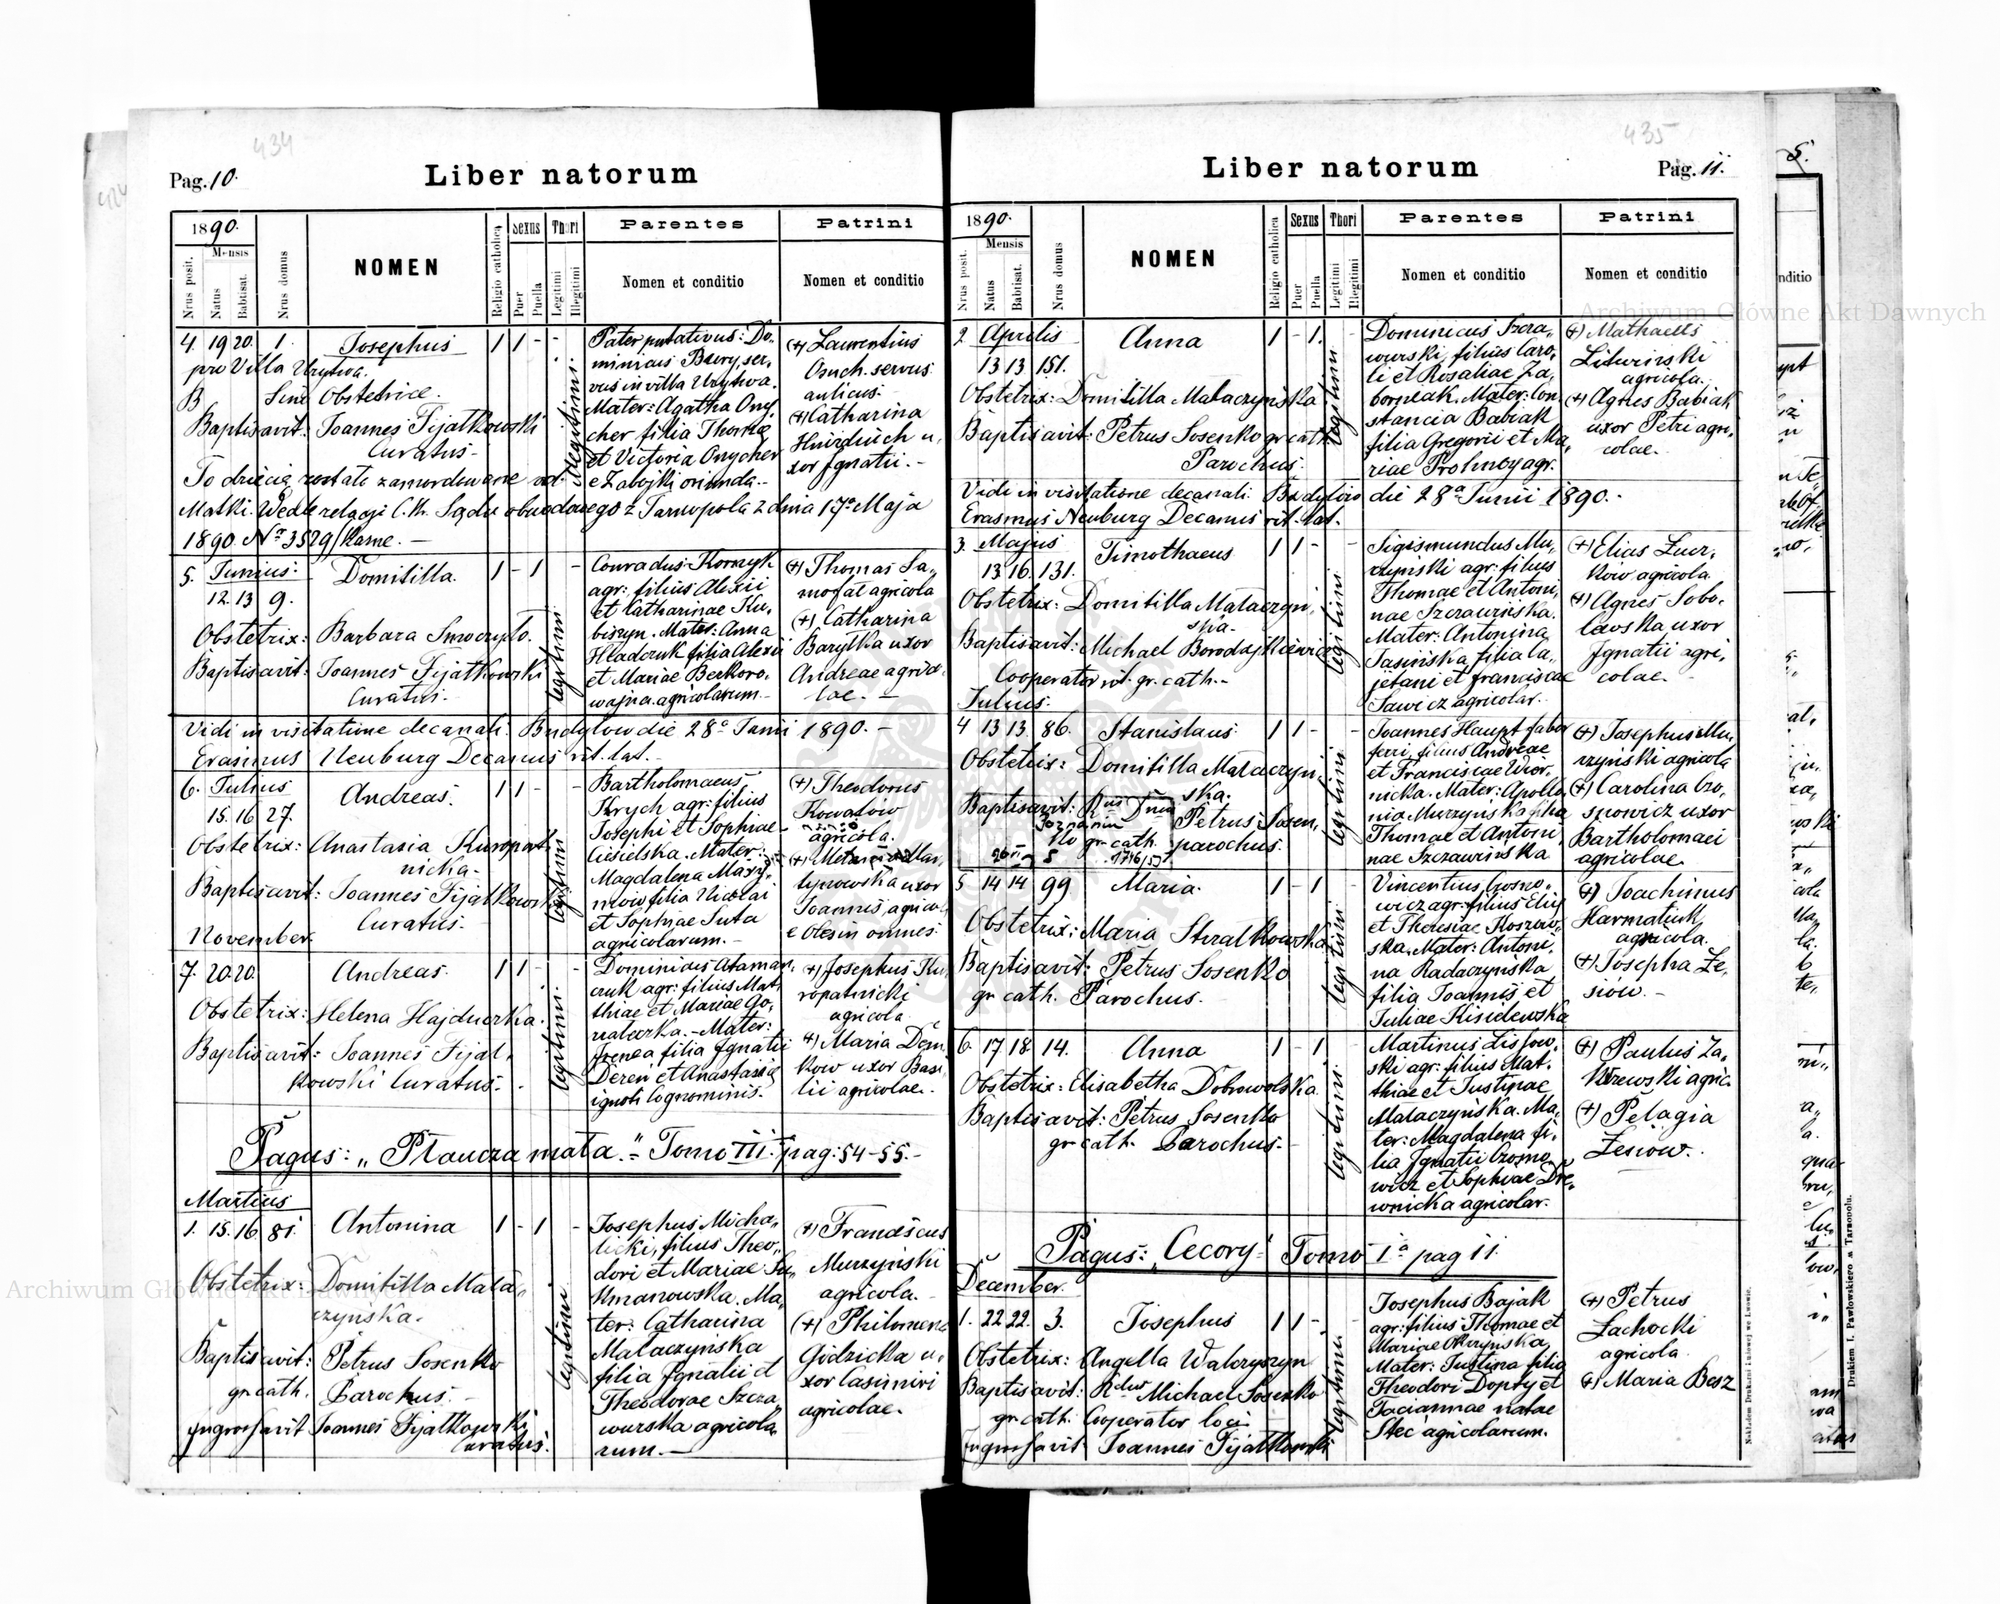 434
Pag. 10.
Liber natorum
1890.
Mensis
Nrus posit.
Natus
Babtisat.
Nrus domus
NOMEN
Religio catholica
Sexus
Puer
Puella
Thori
Legitimi
Illegitimi
Parentes
Nomen et conditio
Patrini
Nomen et conditio
4. 19 20. 1. Josephus 1 1 - -
pre Villa Urytwa.
Sine Obstetrice.
Baptisavit: Joannes Fijałkowski
Curatus -
illegitimi.
Pater putativus: Do„
minicus Bury, ser„
vus in villa Urytwa.
Mater: Agatha Ony„
cher filia Thomæ
et Victoria Onycher
e Zabojki oriunda. -
(+) Laurentius
Osuch. servus
aulicus.
(+) Catharina
uxor Ignatii. -
To dziecię zostało zamordowane od
Matki. Wedle relacyi C. K. Sądu obwodowego z Tarnopola z dnia 17º Maja
1890. Nº 3529/karne. -
5. Junius: Domitilla. 1 - 1 -
12. 13 9.
Obstetrix: Barbara Smoczyło.
Baptisavit: Joannes Fijałkowski
Curatus.
legitimi
Conradus Kornyk
agr: filius Alexii
et Catharinae Ku„
biszyn. Mater: Anna
Hladczuk filia Alexii
et Mariae Berkoro„
wajna agricolarum. -
(+) Thomas Sa„
mofał agricola
(+) Catharina
Baryłka uxor
Andreae agrico„
lae. -
Vidi in visitatione decanali. Budylow die 28ª Junii 1890. -
Erasmus Neuburg Decanus rit. lat. -
6. Julius Andreas. 1 1 - -
15. 16 27.
Obstetrix: Anastasia Kuropat„
nicka -
Baptisavit: Joannes Fijałkowski
Curatus.
legitimi
Bartholomaeus
Krych agr: filius
Josephi et Sophiae
Ciesielska. Mater:
Magdalena Maxy„
mow filia Nicolai
et Sophiae Suta
agricolarum. -
(+) Theodorus
Kowalow
agricola.
uxor
Joannis, agricol
e Olesin omnes.
November.
7. 20 20. Andreas. 1 1 - -
Obstetrix: Helena Hajduczka.
Baptisavit: Joannes Fijał„
kowski Curatus.
legitimi.
Dominicus Ataman„
czuk agr: filius Mat„
thiae et Mariae Go„
Mater:
Irena filia Ignatii
Dereń et Anastasiæ
ignoti Cognominis.
(+) Josephus Ku„
ropatnicki
agricola
(+) Maria Dom„
kow uxor Basi„
lii agricolae.
Pagus: „Płaucza mała." Tomo III. pag: 54-55. -
Martius
1. 15. 16 81. Antonina 1 - 1 -
Obstetrix: Domitilla Mała„
czyńska.
Baptisavit: Petrus Sosenko
gr. cath. Parochus. -
Ingrossavit Joannes Fijałkowski
Curatus.
legitimi
Josephus Micha„
licki, filius Theo„
dori et Mariae Su„
kmanowska. Ma„
ter: Catharina
Małaczyńska
filia Ignatii et
Theodorae Szcza„
wurska agricola„
rum. -
(+) Franciscus
Murzyński
agricola. -
(+) Philomena
Godzicka u„
xor Casimiri
agricolae.
435
Liber natorum
Pag. 11.
1890.
Mensis
Nrus posit.
Natus
Babtisat.
Nrus domus
NOMEN
Religio catholica
Sexus
Puer
Puella
Thori
Legitimi
Illegitimi
Parentes
Nomen et conditio
Patrini
Nomen et conditio
2 Aprilis Anna 1 - 1. -
13 13 151.
Obstetrix: Domitilla Małaczyńska
Baptisavit: Petrus Sosenko gr. cath.
Parochus.
legitimi
Dominicus Szcza„
wurski, filius Caro„
li et Rosaliae Za„
borniak. Mater: Con„
stancia Babiak
filia Gregorii et Ma„
riae Prohnoy agr.
(+) Mathaeus
Litwinski
agricola.
(+) Agnes Babiak
uxor Petri agri„
colae.
Vidi in visitatione decanali. Budylow die 28ª Junii 1890. -
Erasmus Neuburg Decanus rit. lat.
3. Majus Timothaeus 1 1 - -
13 16. 131.
Obstetrix: Domitilla Małaczyń„
ska.
Baptisavit: Michael Borodajkiewicz
Cooperator rit. gr. cath. -
legitimi
Sigismundus Mu„
rzyński agr: filius
Thomae et Antoni„
nae Szczawińska.
Mater: Antonina
Jasińska filia Ca„
jetani et Franciscae
Sawicz agricolar.
(+) Elias Zwer„
kow agricola.
(+) Agnes Sobo„
lewska uxor
Ignatii agri„
colae. -
Julius.
4 13 13. 86. Stanislaus. 1 1 - -
Obstetrix: Domitilla Małaczyń„
ska.
Baptisavit: Petrus Sosen„
ko gr. cath. parochus.
legitimi
Joannes Haupt faber
ferri, filius Andreae
et Franciscae Wior„
nicka. Mater: Apollo„
nia Murzyńska filia
Thomae et Antoni„
nae Szczawińska
(+) Josephus Mu„
rzyński agricola
(+) Carolina Gro„
snowicz uxor
Bartholomaei
agricolae.
5 14 14 99 Maria. 1 - 1 -
Obstetrix: Maria Strałkowska
Baptisavit: Petrus Sosenko
gr. cath. Parochus.
legitimi
Vincentius Grosno„
wicz agr: filius Eliæ
et Theresiae Koszow„
ska. Mater: Antoni„
na Radaczyńska
filia Joannis et
Juliae Kisielewska
(+) Joachimus
Harmatiuk
agricola.
(+) Josepha Ze„
niow. -
6. 17 18. 14. Anna 1 - 1 -
Obstetrix: Elisabetha Dobrowolska.
Baptisavit: Petrus Sosenko
gr. cath. Parochus. -
legitimi
Martinus Lisow„
ski agr: filius Mat„
thiae et Justinae
Małaczyńska. Ma„
ter: Magdalena fi„
lia Ignatii Grosno„
wicz et Sophiae Dre„
wnicka agricolar.
(+) Paulus Za„
krzewski agric.
(+) Pelagia
Zeniow.
Pagus: „Cecory" Tomo Iª pag 11.
December.
1. 22 22. 3. Josephus 1 1 - -
Obstetrix: Angella Walczyszyn
Baptisavit: Rdus Michael Sosenko
gr. cath. Cooperator loci
Ingrossavit Joannes Fijałkowski
legitimi
Josephus Bajak
agr: filius Thomae et
Mariae Skrzyńska
Mater: Justina filia
Theodori Dopry et
Taciannae natae
Stec agricolarum.
(+) Petrus
Zachocki
agricola
(+) Maria Besz
Nakładem Drukarni Ludowej we Lwowie.
Drukiem I. Pawłowskiego w Tarnopolu.
Archiwum Główne Akt Dawnych
Archiwum Główne Akt Dawnych